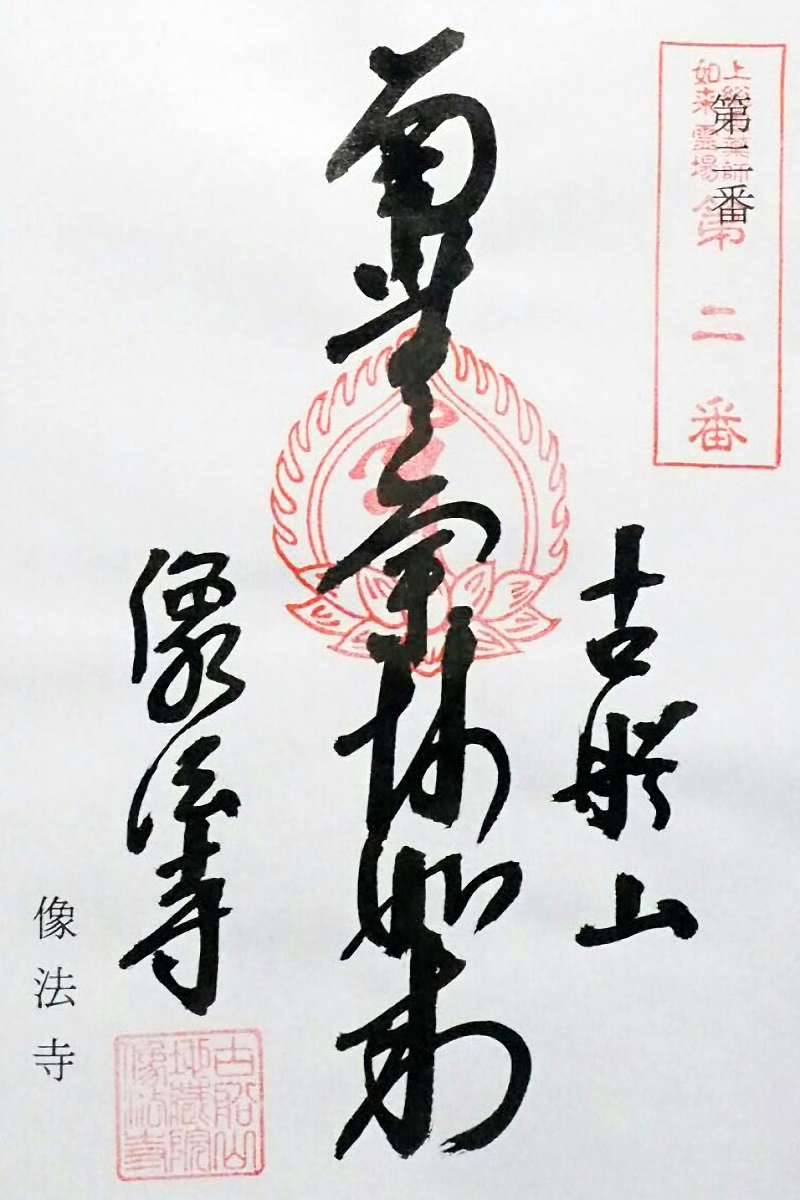 上総薬師
如来霊場
第二番
第二番
古船山
南無薬師如来
像法寺
像法寺
古船山
地蔵院
像法寺